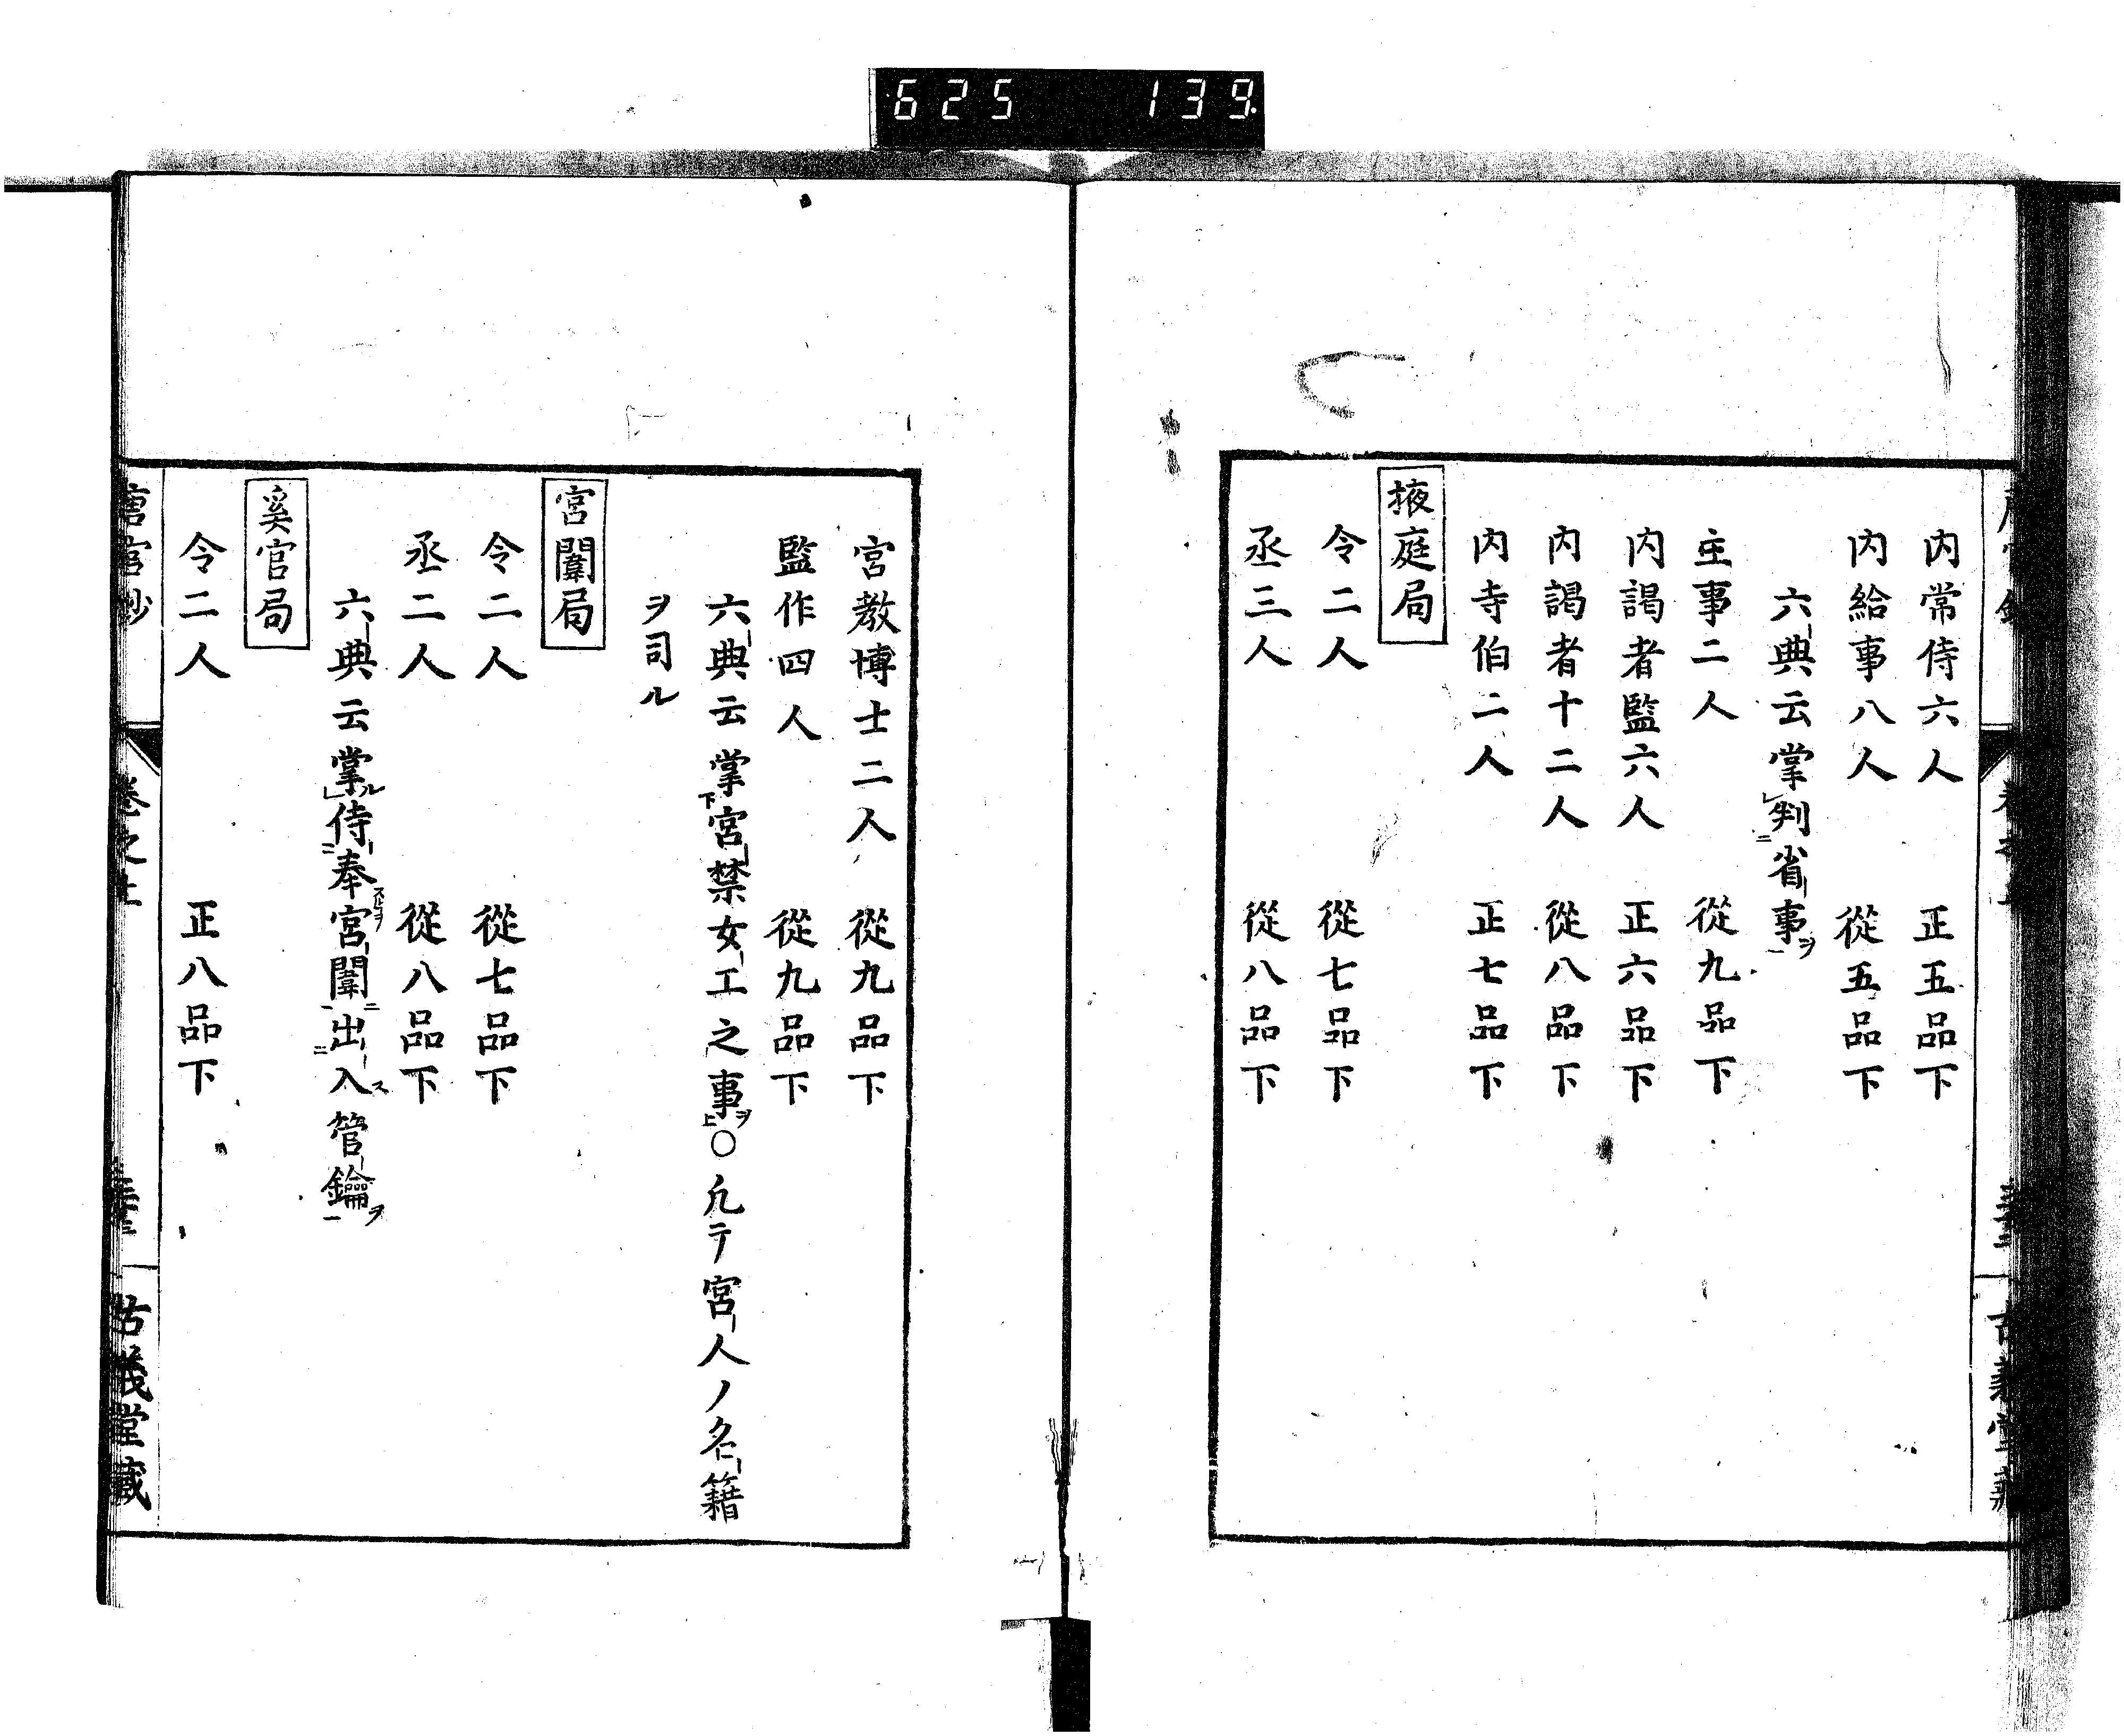 625 139
内常侍六人 正五品下
内給事八人 從五品下
六典云掌㆑判㆓省事㆒ヲ
主事二人 從九品下
内謁者監六人 正六品下
内謁者十二人 從八品下
内寺伯二人 正七品下
掖庭局
令二人 從七品下
丞三人 從八品下
宮教博士二人 從九品下
監作四人 從九品下
六典云掌㆘宮禁女工之事㆖ヲ〇凢テ宮人ノ名籍
ヲ司ル
宮闈局
令二人 從七品下
丞二人 從八品下
六典云掌ル㆑侍㆓奉宮闈㆒ニ出㆓入ス管鑰㆒ヲ
奚官局
令二人 正八品下
官鈔 卷之上 古義堂藏